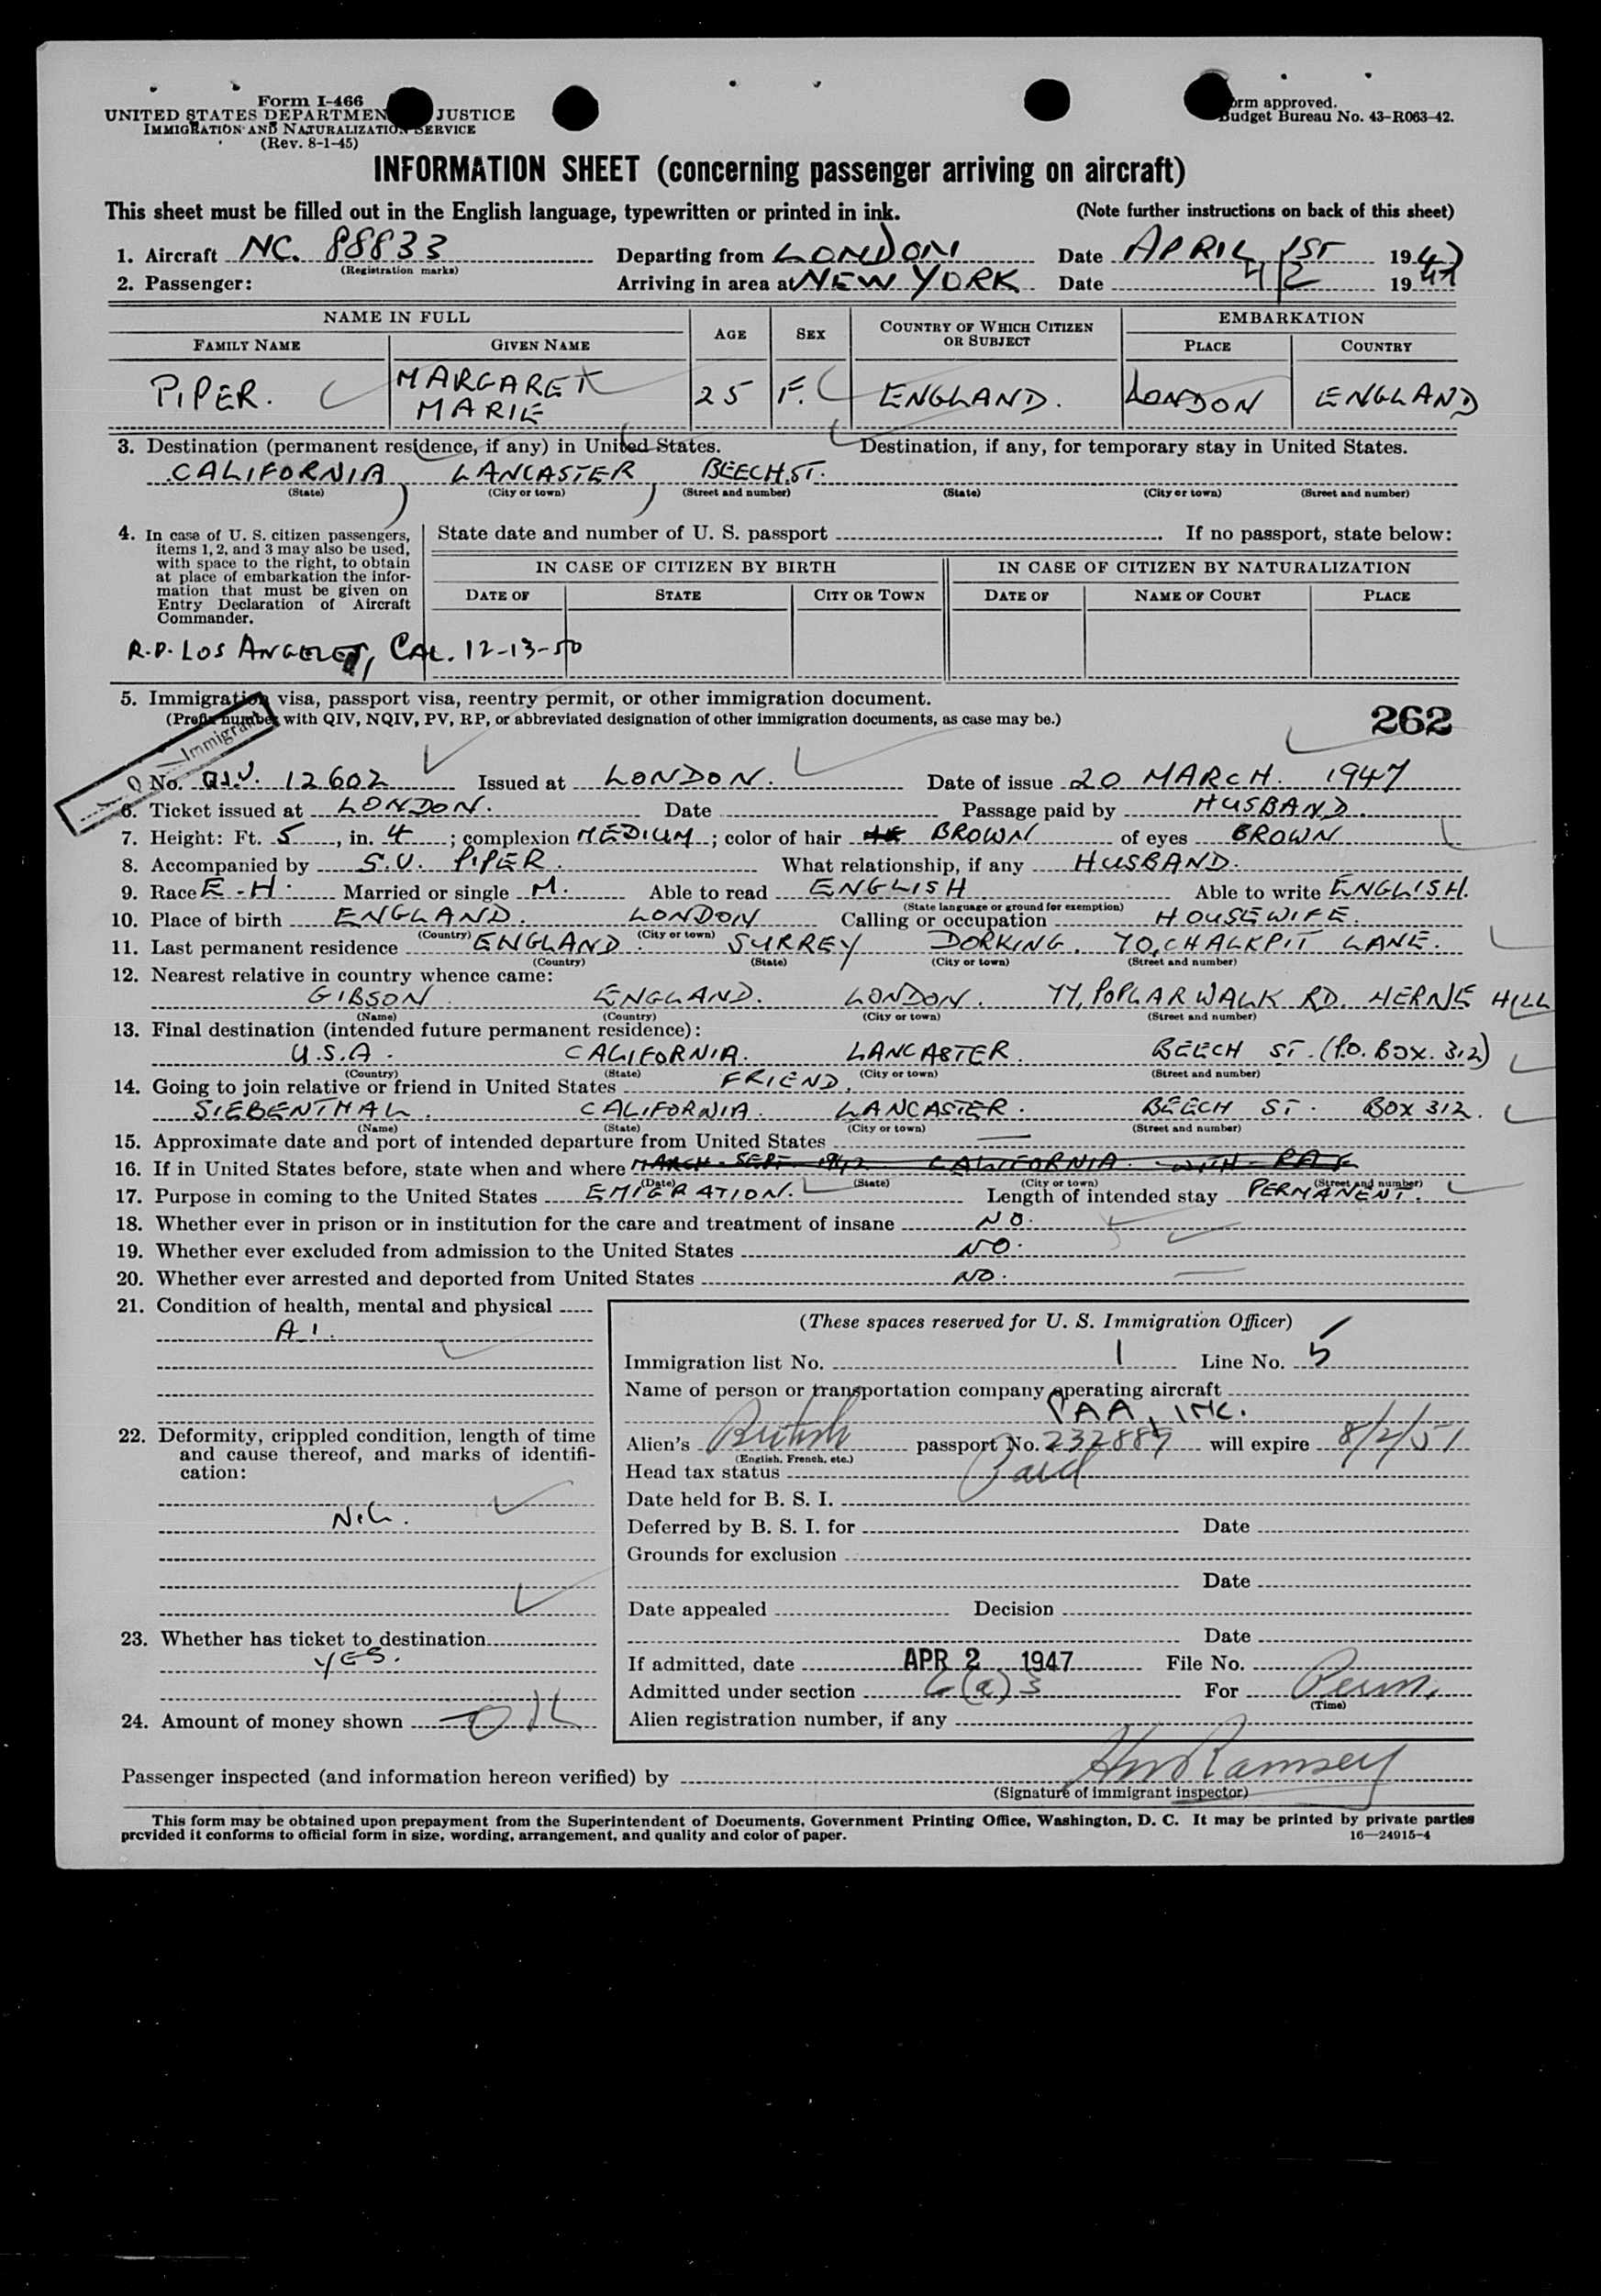 Form I-466
UNITED STATES DEPARTMENT JUSTICE
IMMIGRATION AND NATURALIZATION SERVICE
(Rev. 8-1-45)
Form approved.
Budget Bureau No. 43-R063-42.
INFORMATION SHEET (concerning passenger arriving on aircraft)
This sheet must be filled out in the English language, typewritten or printed in ink. (Note further instructions on back of this sheet)
1. Aircraft NC. 88833 Departing from LONDON Date APRIL 1ST 1947
(Registration marks)
2. Passenger: Arriving in area at NEW YORK Date 4/2 1947
NAME IN FULL AGE SEX COUNTRY OF WHICH CITIZEN OR SUBJECT EMBARKATION
FAMILY NAME GIVEN NAME PLACE COUNTRY
PIPER. MARGARET MARIE 25 F. ENGLAND. LONDON ENGLAND
3. Destination (permanent residence, if any) in United States. Destination, if any, for temporary stay in United States.
CALIFORNIA LANCASTER BEECH.ST.
(State) (City or town) (Street and number) (State) (City or town) (Street and number)
4. In case of U. S. citizen passengers, items 1, 2, and 3 may also be used, with space to the right, to obtain at place of embarkation the information that must be given on Entry Declaration of Aircraft Commander.
State date and number of U. S. passport If no passport, state below:
IN CASE OF CITIZEN BY BIRTH IN CASE OF CITIZEN BY NATURALIZATION
DATE OF STATE CITY OR TOWN DATE OF NAME OF COURT PLACE
R.P. LOS ANGELES, CAL. 12-13-50
5. Immigration visa, passport visa, reentry permit, or other immigration document.
(Prefix number with QIV, NQIV, PV, RP, or abbreviated designation of other immigration documents, as case may be.) 262
Q Immigrant
No. Q.I.V. 12602 Issued at LONDON. Date of issue 20 MARCH. 1947
6. Ticket issued at LONDON. Date Passage paid by HUSBAND.
7. Height: Ft. 5, in. 4; complexion MEDIUM; color of hair BROWN of eyes BROWN
8. Accompanied by S.V. PIPER. What relationship, if any HUSBAND.
9. Race E-H. Married or single M. Able to read ENGLISH Able to write ENGLISH.
(State language or ground for exemption)
10. Place of birth ENGLAND. LONDON Calling or occupation HOUSEWIFE.
(Country) (City or town)
11. Last permanent residence ENGLAND. SURREY DORKING. 70, CHALKPIT LANE.
(Country) (State) (City or town) (Street and number)
12. Nearest relative in country whence came:
GIBSON. ENGLAND. LONDON. 77, POPLAR WALK RD. HERNE HILL
(Name) (Country) (City or town) (Street and number)
13. Final destination (intended future permanent residence):
U.S.A. CALIFORNIA. LANCASTER. BEECH ST. (P.O. BOX. 312)
(Country) (State) (City or town) (Street and number)
14. Going to join relative or friend in United States FRIEND.
SIEBENTHAL. CALIFORNIA. LANCASTER. BEECH ST. BOX 312.
(Name) (State) (City or town) (Street and number)
15. Approximate date and port of intended departure from United States —
16. If in United States before, state when and where MARCH - SEPT 1942 CALIFORNIA. WITH RAF
(Date) (State) (City or town) (Street and number)
17. Purpose in coming to the United States EMIGRATION. Length of intended stay PERMANENT.
18. Whether ever in prison or in institution for the care and treatment of insane NO.
19. Whether ever excluded from admission to the United States NO.
20. Whether ever arrested and deported from United States NO.
21. Condition of health, mental and physical
A1.
22. Deformity, crippled condition, length of time and cause thereof, and marks of identification:
NIL.
23. Whether has ticket to destination
YES.
24. Amount of money shown OK
(These spaces reserved for U. S. Immigration Officer)
Immigration list No. 1 Line No. 5
Name of person or transportation company operating aircraft
PAA, INC.
Alien's British passport No. 232887 will expire 8/2/51
(English, French, etc.)
Head tax status Paid
Date held for B. S. I.
Deferred by B. S. I. for Date
Grounds for exclusion
Date
Date appealed Decision
Date
If admitted, date APR 2 1947 File No.
Admitted under section 6(a)3 For Perm.
(Time)
Alien registration number, if any
Passenger inspected (and information hereon verified) by Ramsey
(Signature of immigrant inspector)
This form may be obtained upon prepayment from the Superintendent of Documents, Government Printing Office, Washington, D. C. It may be printed by private parties
provided it conforms to official form in size, wording, arrangement, and quality and color of paper. 16—24915-4